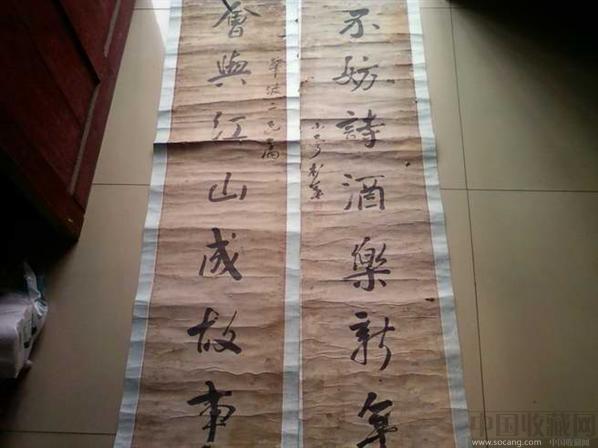 不妨詩酒樂新年
會與江山成故事
中国收藏网
www.socang.com 中国收藏网